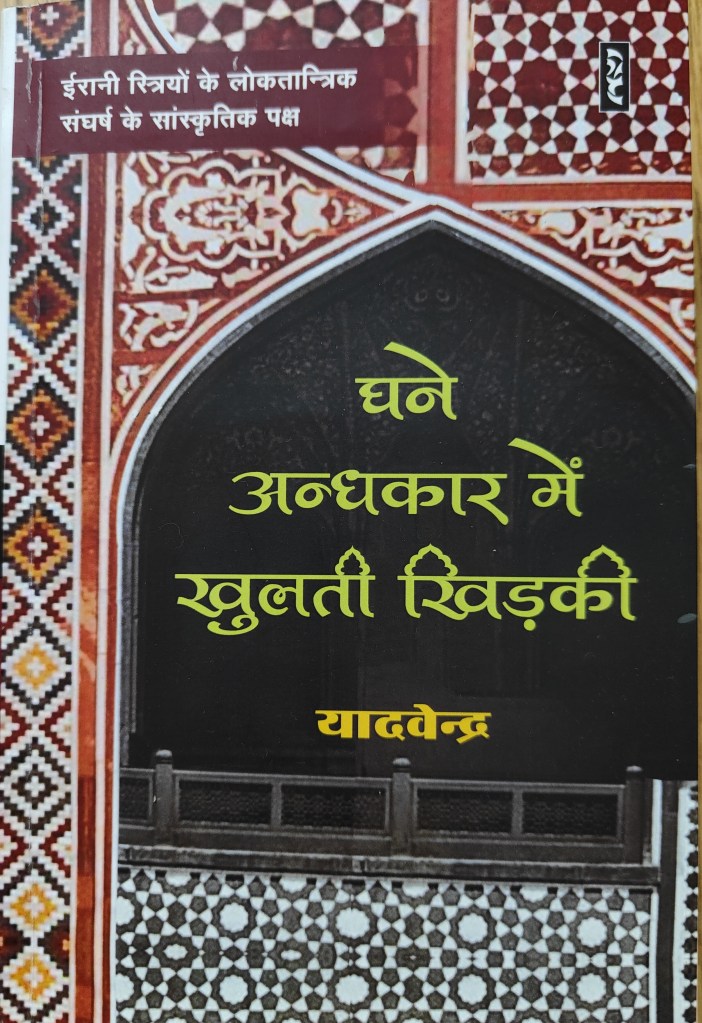 ईरानी स्त्रियों के लोकतान्त्रिक
संघर्ष के सांस्कृतिक पक्ष
घने
अन्धकार में
खुलती खिड़की
यादवेन्द्र